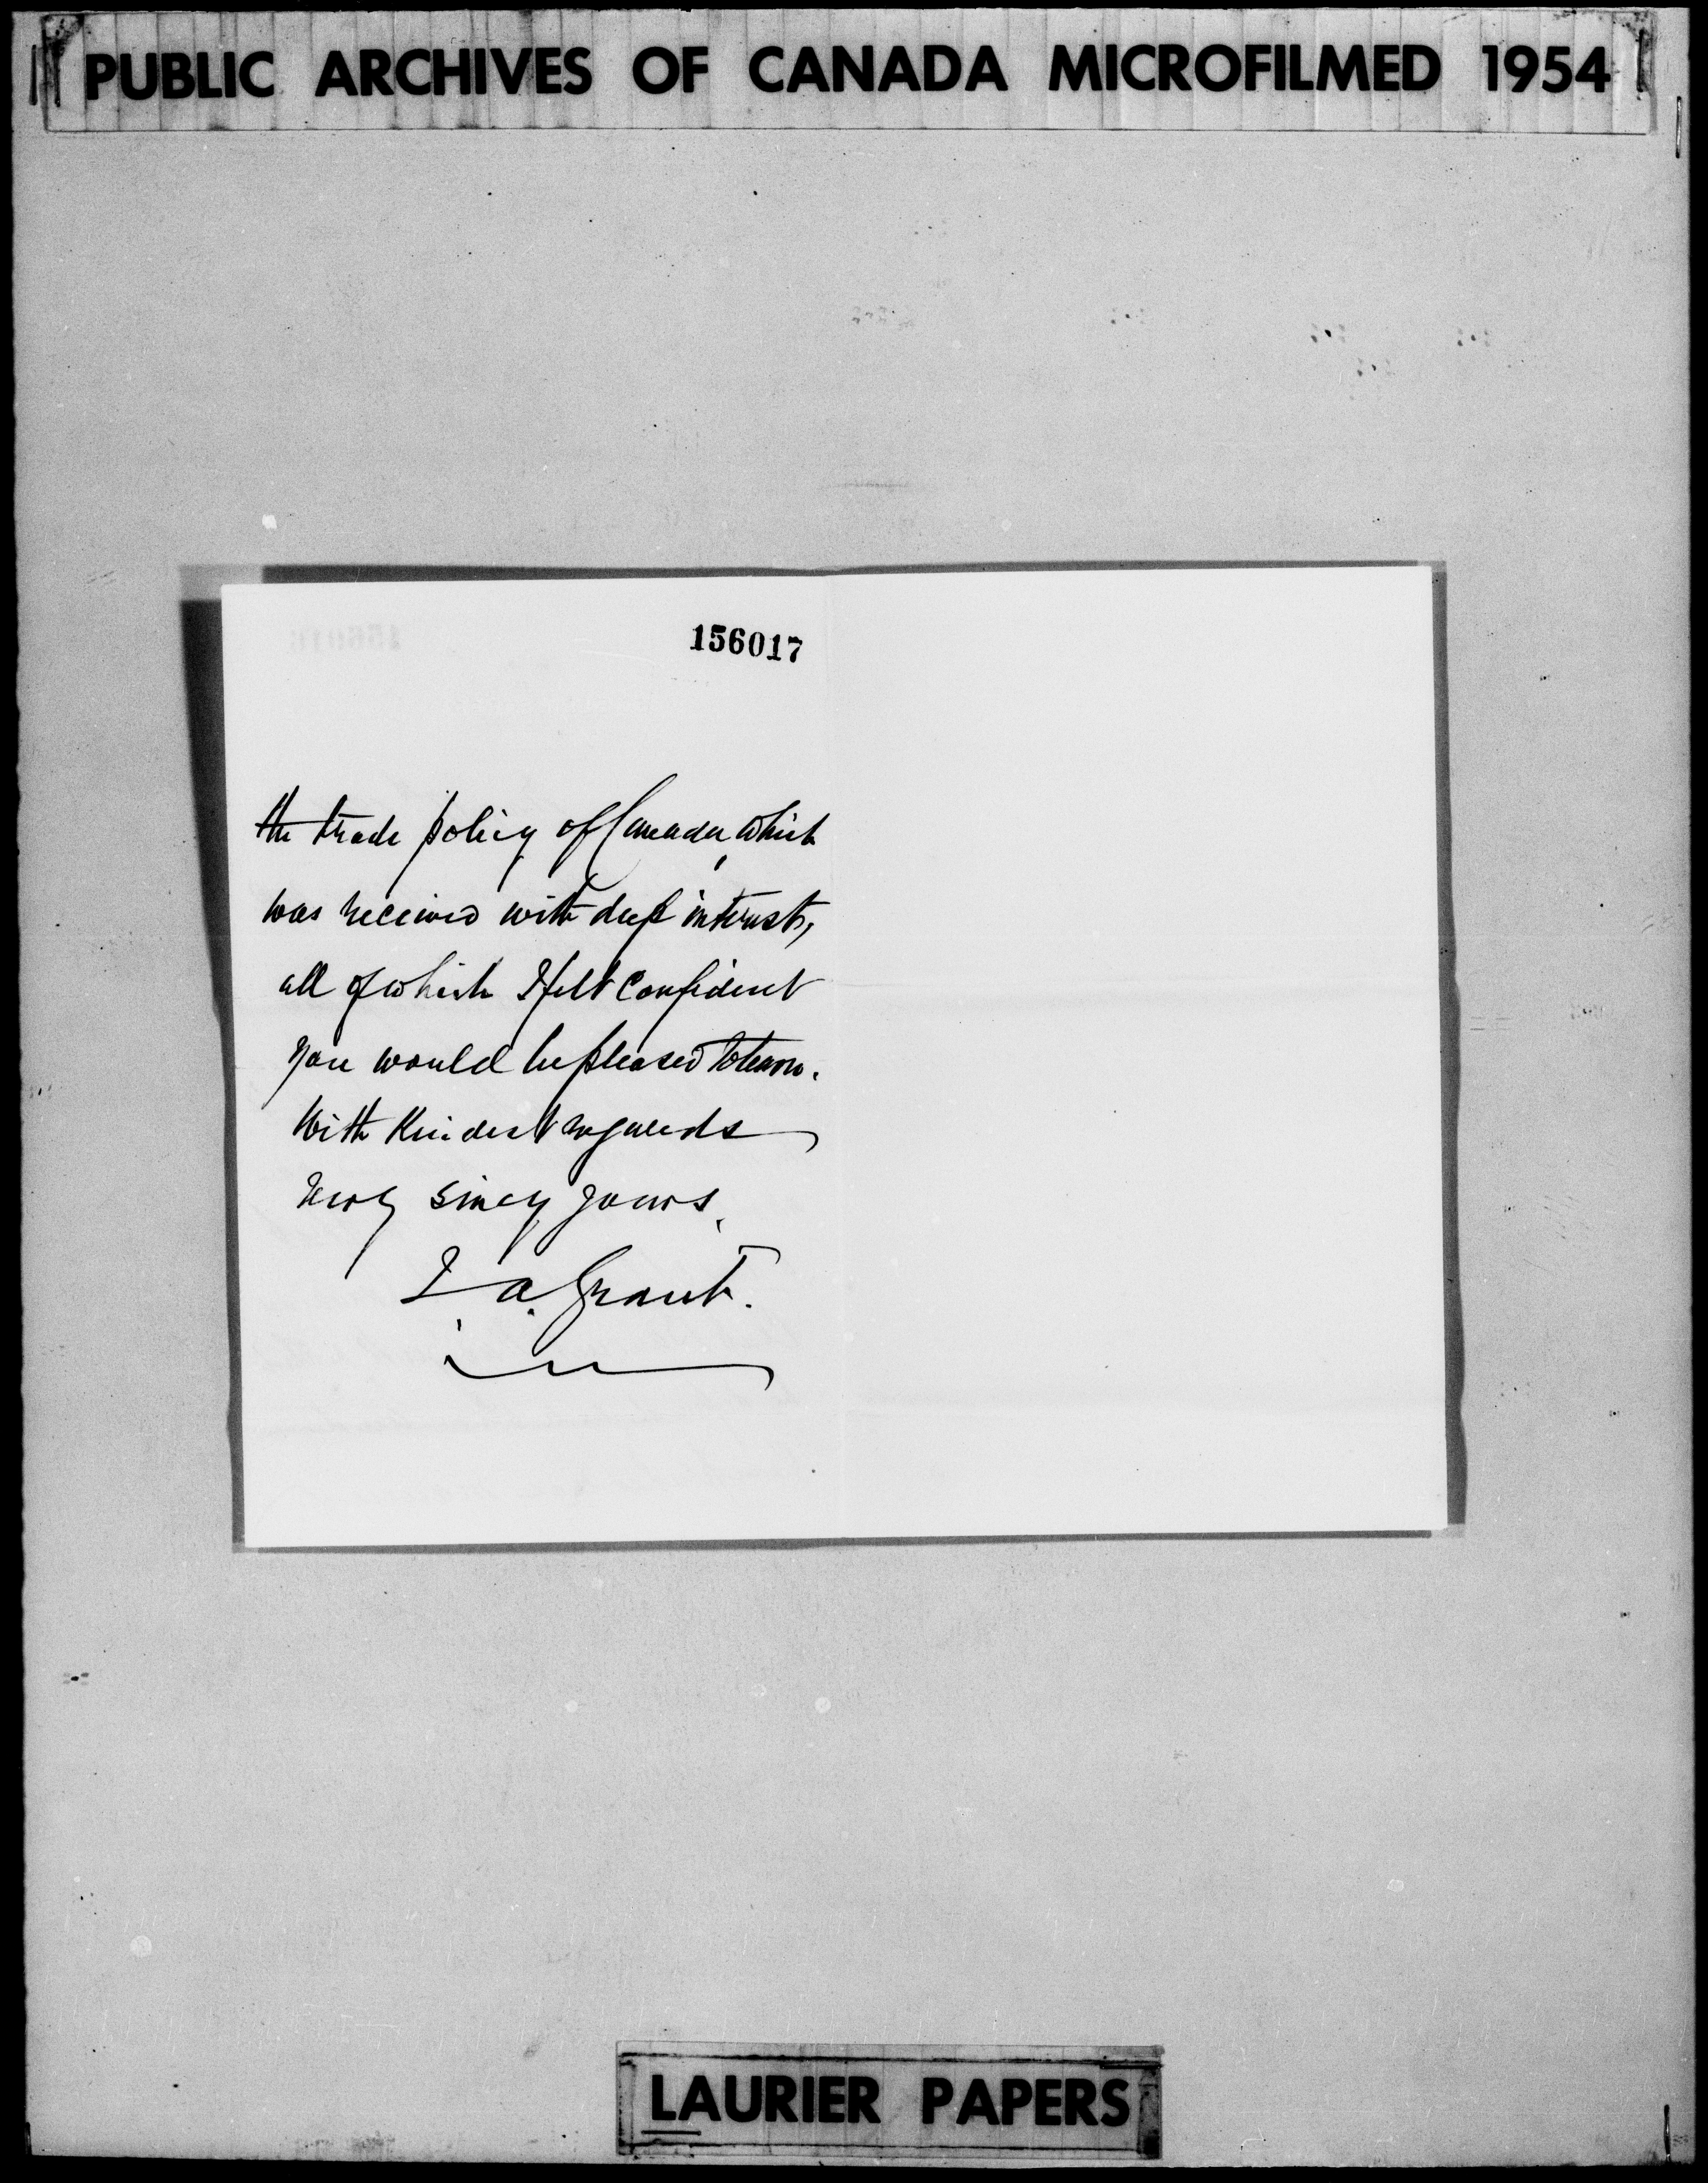 PUBLIC ARCHIVES OF CANADA MICROFILMED 1954
156017
the trade policy of Canada, which
was received with deep interest,
all of which I felt confident
you would be pleased to learn.
With Kindest regards
Very sincy yours,
J. A. Grant.
LAURIER PAPERS